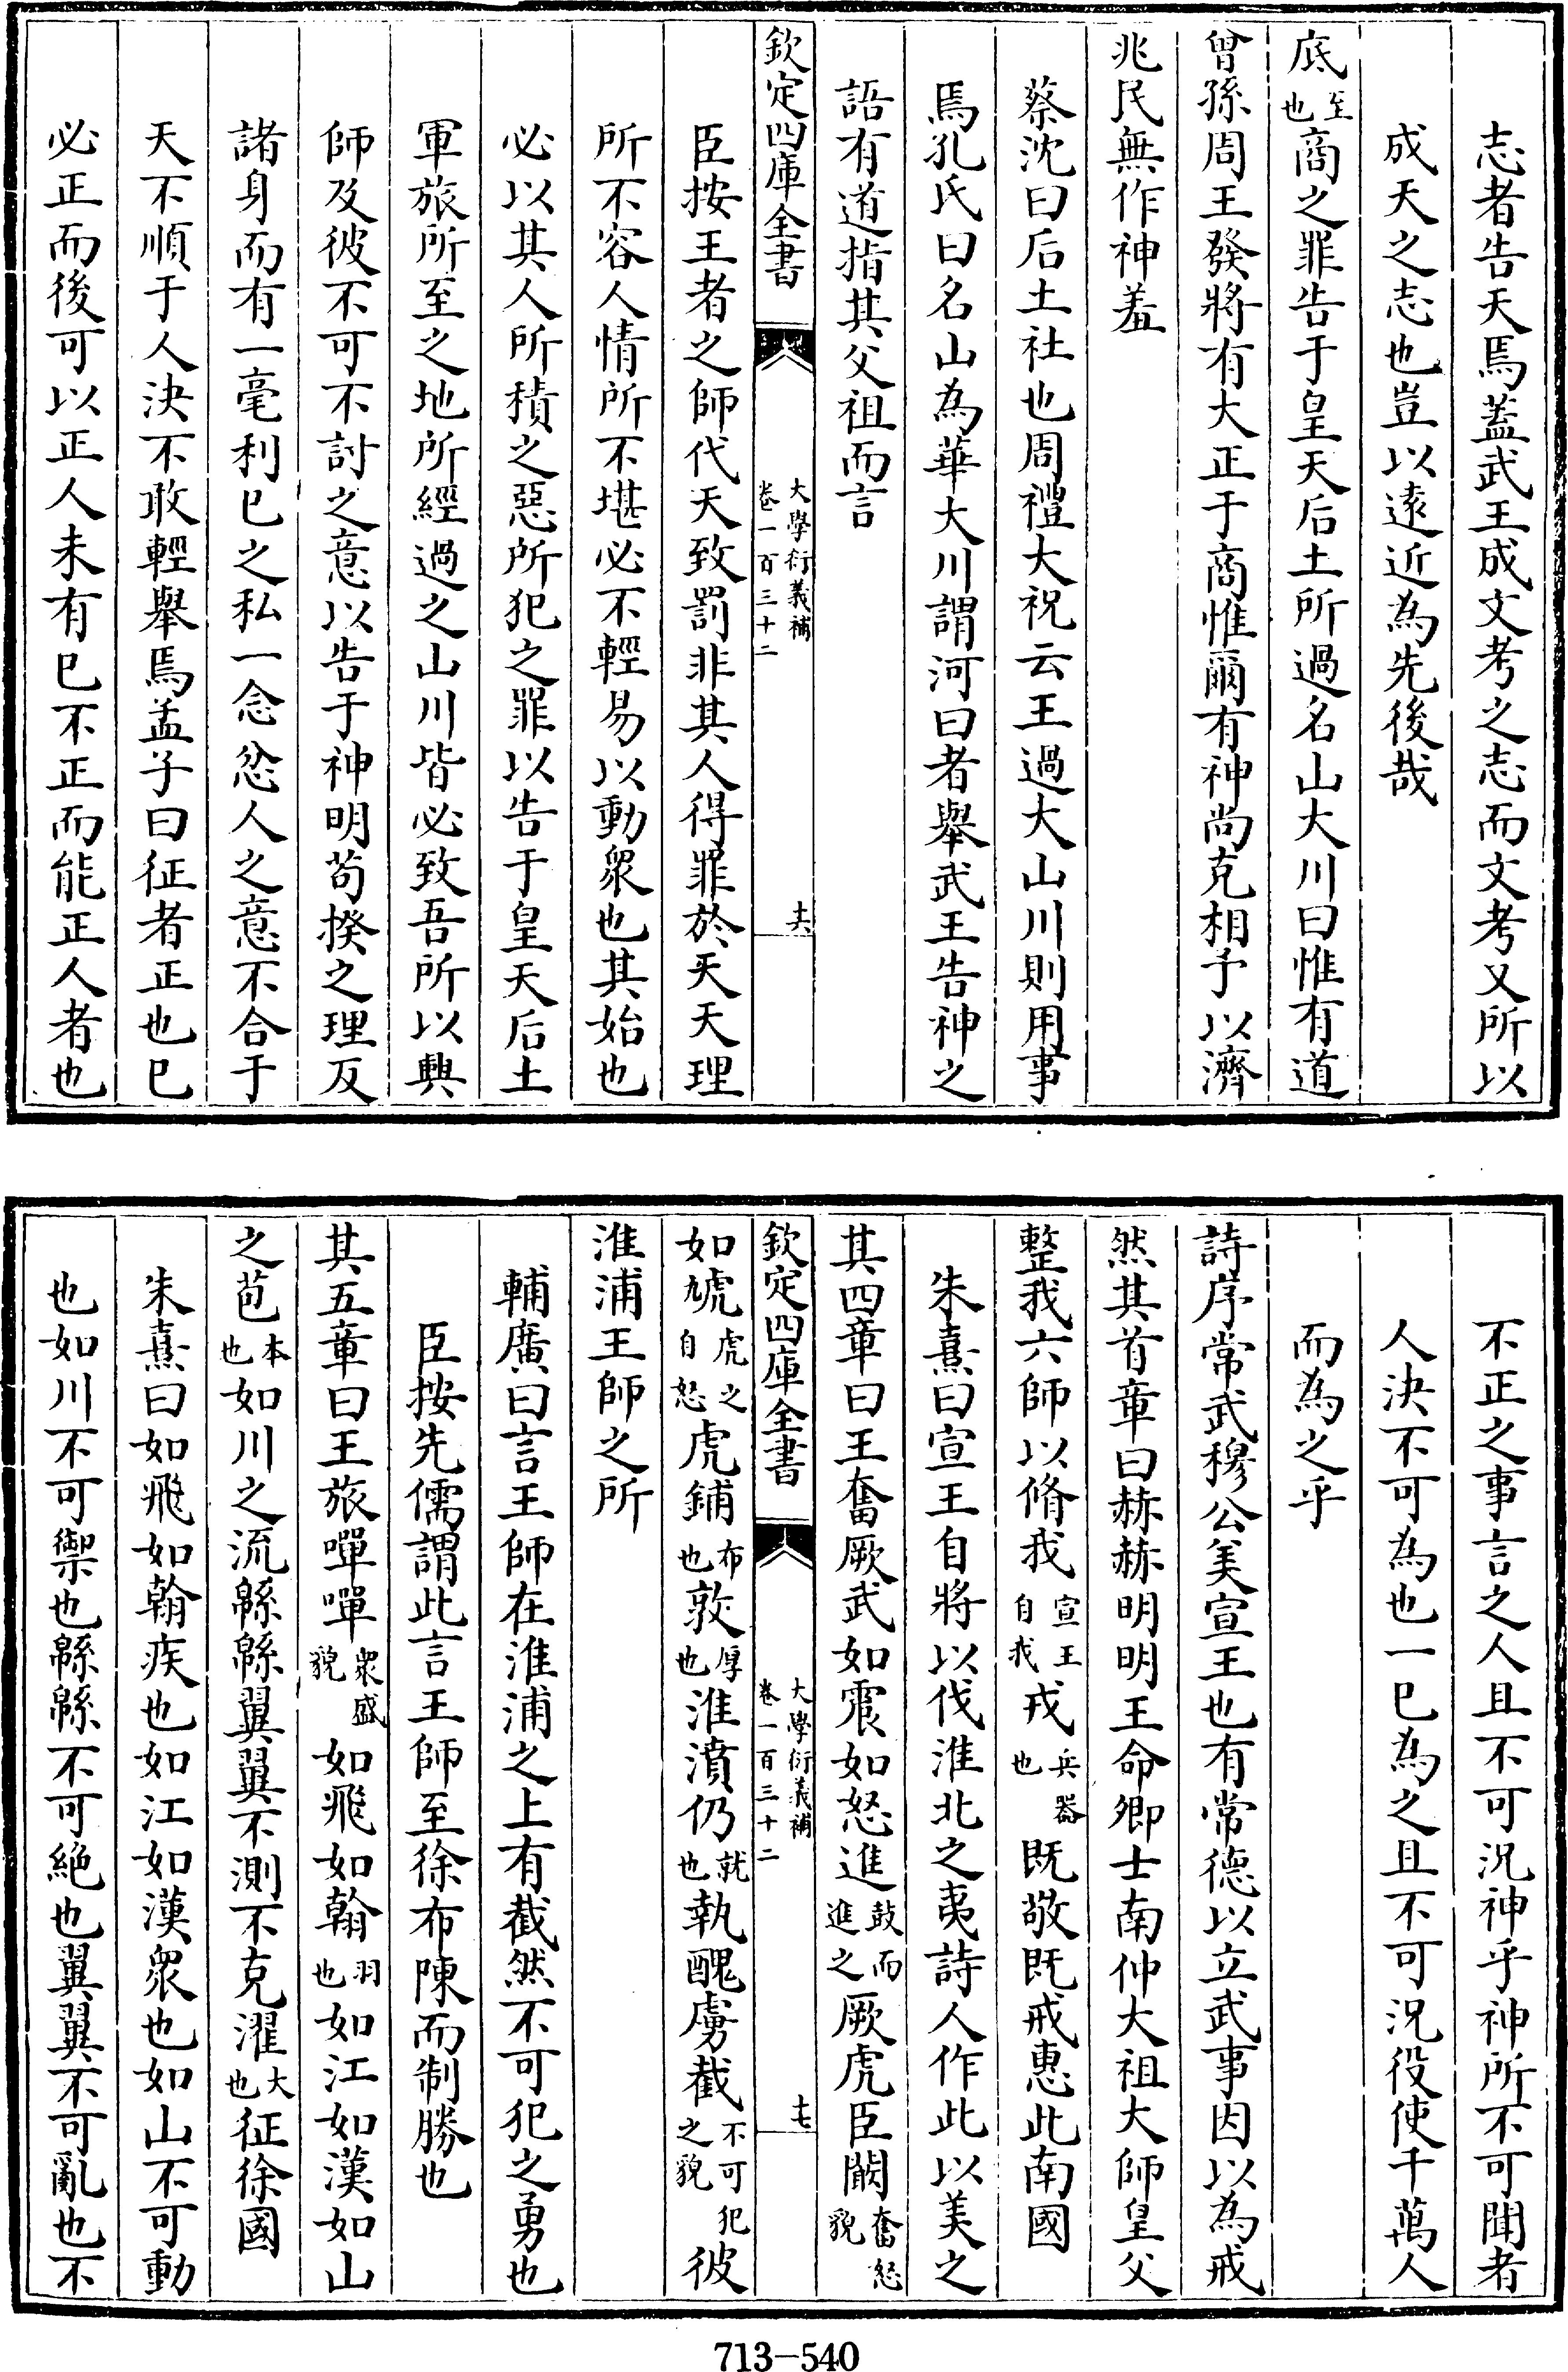 志者告天焉蓋武王成文考之志而文考又所以
成天之志也豈以遠近為先後哉
底至也商之罪告于皇天后土所過名山大川曰惟有道
曾孫周王發將有大正于商惟爾有神尚克相予以濟
兆民無作神羞
蔡沈曰后土社也周禮大祝云王過大山川則用事
焉孔氏曰名山為華大川謂河曰者舉武王告神之
語有道指其父祖而言
欽定四庫全書
大學衍義補
卷一百三十二
十六
臣按王者之師代天致罰非其人得罪於天天理
所不容人情所不堪必不輕易以動衆也其始也
必以其人所積之惡所犯之罪以告于皇天后土
軍旅所至之地所經過之山川皆必致吾所以興
師及彼不可不討之意以告于神明苟揆之理反
諸身而有一毫利已之私一念忿人之意不合于
天不順于人決不敢輕舉焉孟子曰征者正也已
必正而後可以正人未有已不正而能正人者也
不正之事言之人且不可況神乎神所不可聞者
人決不可為也一已為之且不可況役使千萬人
而為之乎
詩序常武穆公美宣王也有常德以立武事因以為戒
然其首章曰赫赫明明王命卿士南仲大祖大師皇父
整我六師以脩我宣王自我戎兵器也既敬既戒惠此南國
朱熹曰宣王自將以伐淮北之夷詩人作此以美之
其四章曰王奮厥武如震如怒進鼓而進之厥虎臣闞奮怒貌
欽定四庫全書
大學衍義補
卷一百三十二
十七
如虓虎之自怒虎鋪布也敦厚也淮濆仍就也執醜虜截不可犯之貌彼
淮浦王師之所
輔廣曰言王師在淮浦之上有截然不可犯之勇也
臣按先儒謂此言王師至徐布陳而制勝也
其五章曰王旅嘽嘽衆盛貌如飛如翰羽也如江如漢如山
之苞本也如川之流緜緜翼翼不測不克濯大也征徐國
朱熹曰如飛如翰疾也如江如漢衆也如山不可動
也如川不可禦也緜緜不可絕也翼翼不可亂也不
713-540